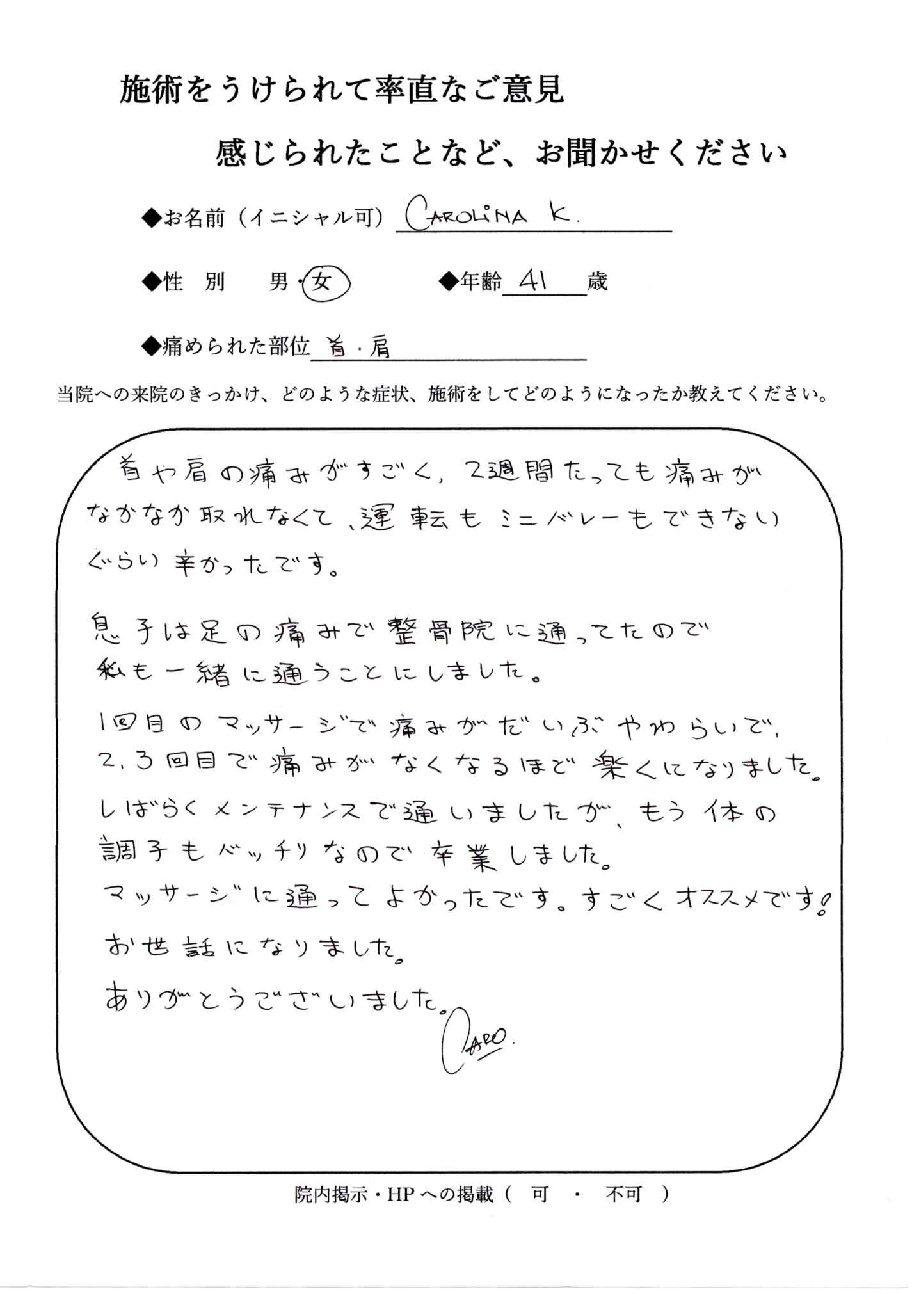 施術をうけられて率直なご意見
感じられたことなど、お聞かせください
◆お名前（イニシャル可） CAROLINA K.
◆性 別 男・女 ◆年齢 41 歳
◆痛められた部位 首・肩
当院への来院のきっかけ、どのような症状、施術をしてどのようになったか教えてください。
首や肩の痛みがすごく、2週間たっても痛みが
なかなか取れなくて、運転もミニバレーもできない
ぐらい辛かったです。
息子は足の痛みで整骨院に通ってたので
私も一緒に通うことにしました。
1回目のマッサージで痛みがだいぶやわらいで、
2、3回目で痛みがなくなるほど楽くになりました。
しばらくメンテナンスで通いましたが、もう体の
調子もバッチリなので卒業しました。
マッサージに通ってよかったです。すごくオススメです!
お世話になりました。
ありがとうございました。
CARO.
院内掲示・HPへの掲載（ 可 ・ 不可 ）